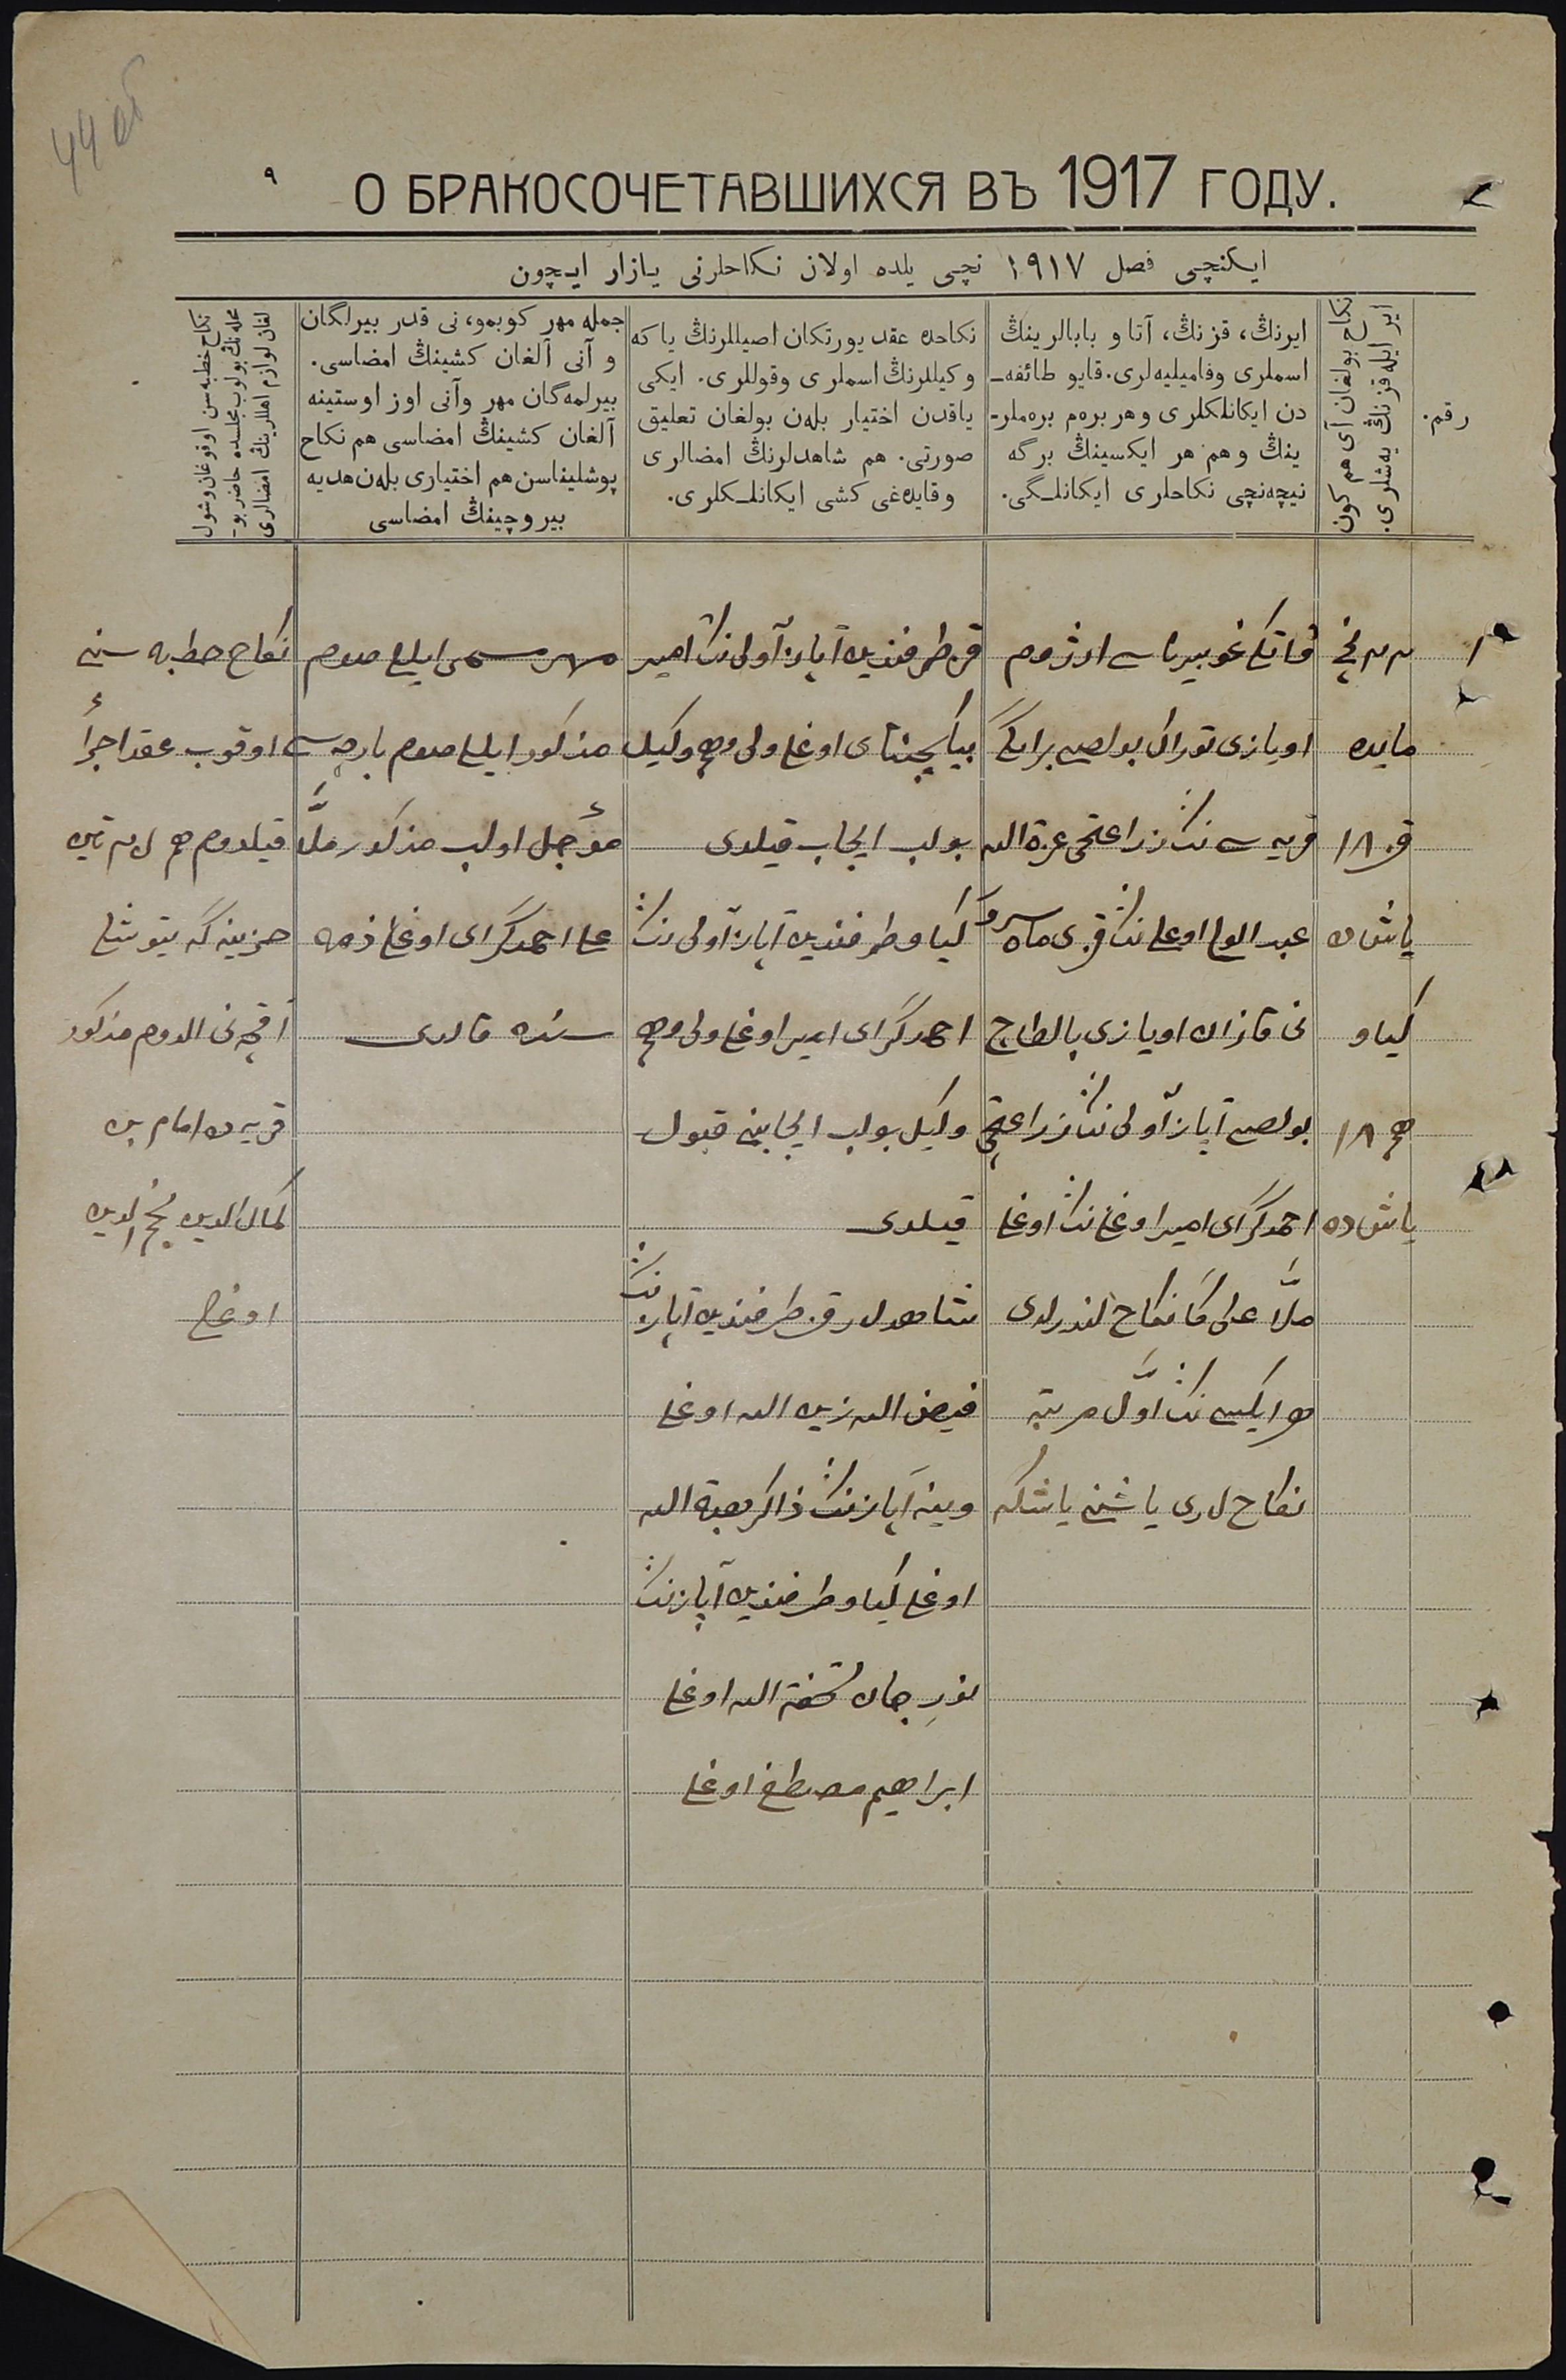 44 об
٩
О БРАКОСОЧЕТАВШИХСЯ ВЪ 1917 ГОДУ.
ایکنچی فصل ١٩١٧ نچی یلده اولان نکاحلرنی یازار ایچون
رقم.
نکاح بولغان آی هم کون
ایر ایله قزنڭ یه‌شلری.
ایرنڭ، قزنڭ، آتا و بابالرینڭ
اسملری وفامیلیه‌لری. قایو طائفه‌ـ
دن ایکانلکلری و هر بره‌م بره‌ملرـ
ینڭ وهم هر ایکسینڭ برگه
نیچه‌نچی نکاحلری ایکانلـگی.
نکاحده عقد یورتکان اصیللرنڭ یا که
وکیللرنڭ اسملری وقوللری. ایکی
یاقدن اختیار بله‌ن بولغان تعلیق
صورتی. هم شاهدلرنڭ امضالری
وقایده‌غی کشی ایکانلـکلری.
جمله مهر کوبمو، نی قدر بیرلگان
و آنی آلغان کشینڭ امضاسی.
بیرلمه‌گان مهر وآنی اوز اوستینه
آلغان کشینڭ امضاسی هم نکاح
پوشلیناسن هم اختیاری بله‌ن هدیه
بیروچینڭ امضاسی
نکاح خطبه‌سن اوقوغان وشول
محله‌نڭ بولوب مجلسده حاضر بوـ
لغان لوازم اهللرینڭ امضالری
١
مایده
قز ١٨
یاشنده
کیاو
هم ١٨
یاشنده
اویازی توراک بولصی
قریه سی ننڭ زراعتچی عزة الله
نی قازان اویازی بالطاچ
بولصی آپاز آولی ننڭ زراعتچی
احمدگرای امیر اوغلی ننڭ اوغلی
ملّا علی گا نکاح لندرلدی
هر ایکیسی ننڭ اوّل مرتبه
نکاح لری یاشینی یاشکه
قز طرفندین آپاز آولی ننڭ امیر
اوغلی ولی وهم وکیل
بولب ایجاب قیلدی
کیاو طرفندین آپاز آولی ننڭ
احمدگرای امیر اوغلی ولی وهم
وکیل بولب ایجابنی قبول
قیلدی
شاهدلر قز طرفندین آپاز ننڭ
فیض الله زین الله اوغلی
وینه آپاز ننڭ ذاکر هبة الله
اوغلی کیاو طرفندین آپاز ننڭ
نورجان تحفة الله اوغلی
ابراهیم مصطفی اوغلی
مهر مسمی ایللی صوم
مذکور ایللی صوم بارچه سی
مؤجل اولب مذکور ملّا
علی احمدگرای اوغلی ذمه
سنده قالدی
نکاح خطبه سنی
اوقوب عقد اجراء
قیلدوم هم
خزینه گه تیوشلی
آقچه نی آلدوم مذکور
قریه ده امام من
کمال الدین نجم الدین
اوغلی